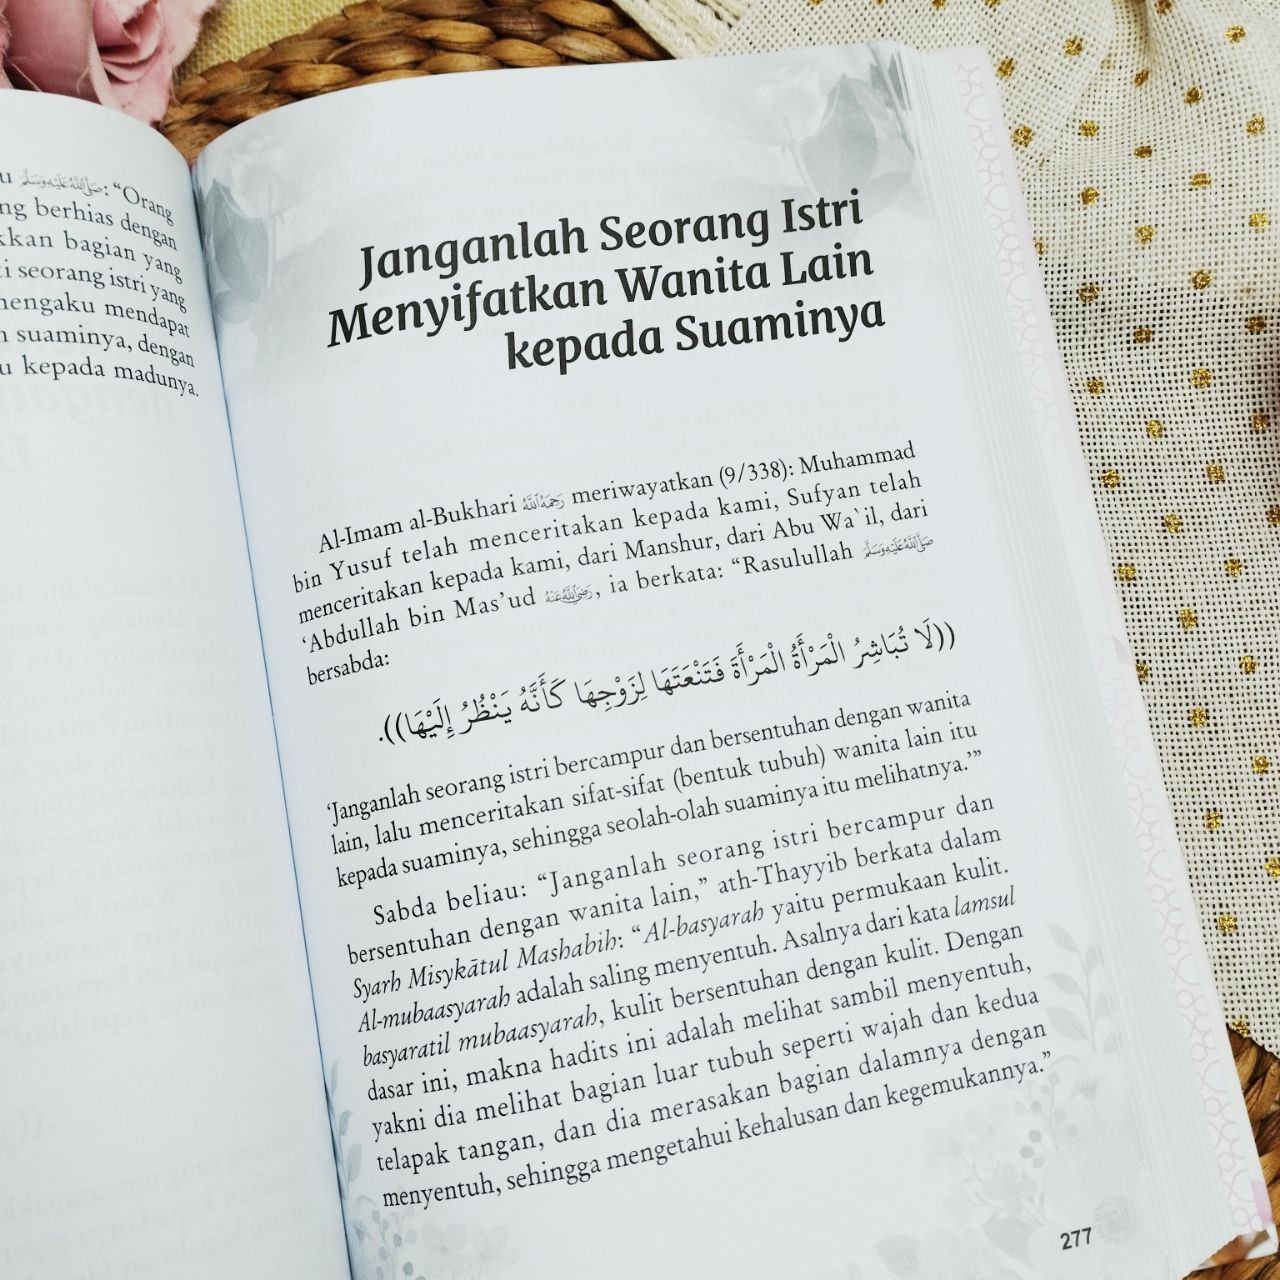 u ﷺ: “Orang
ng berhias dengan
kkan bagian yang
ti seorang istri yang
mengaku mendapat
n suaminya, dengan
u kepada madunya.
Janganlah Seorang Istri
Menyifatkan Wanita Lain
kepada Suaminya
Al-Imam al-Bukhari رَحِمَهُ اللَّهُ meriwayatkan (9/338): Muhammad
bin Yusuf telah menceritakan kepada kami, Sufyan telah
menceritakan kepada kami, dari Manshur, dari Abu Wa`il, dari
‘Abdullah bin Mas’ud رَضِيَ اللَّهُ عَنْهُ, ia berkata: “Rasulullah ﷺ
bersabda:
((لَا تُبَاشِرُ الْمَرْأَةُ الْمَرْأَةَ فَتَنْعَتَهَا لِزَوْجِهَا كَأَنَّهُ يَنْظُرُ إِلَيْهَا)).
‘Janganlah seorang istri bercampur dan bersentuhan dengan wanita
lain, lalu menceritakan sifat-sifat (bentuk tubuh) wanita lain itu
kepada suaminya, sehingga seolah-olah suaminya itu melihatnya.’”
Sabda beliau: “Janganlah seorang istri bercampur dan
bersentuhan dengan wanita lain,” ath-Thayyib berkata dalam
Syarh Misykātul Mashabih: “Al-basyarah yaitu permukaan kulit.
Al-mubaasyarah adalah saling menyentuh. Asalnya dari kata lamsul
basyaratil mubaasyarah, kulit bersentuhan dengan kulit. Dengan
dasar ini, makna hadits ini adalah melihat sambil menyentuh,
yakni dia melihat bagian luar tubuh seperti wajah dan kedua
telapak tangan, dan dia merasakan bagian dalamnya dengan
menyentuh, sehingga mengetahui kehalusan dan kegemukannya.”
277